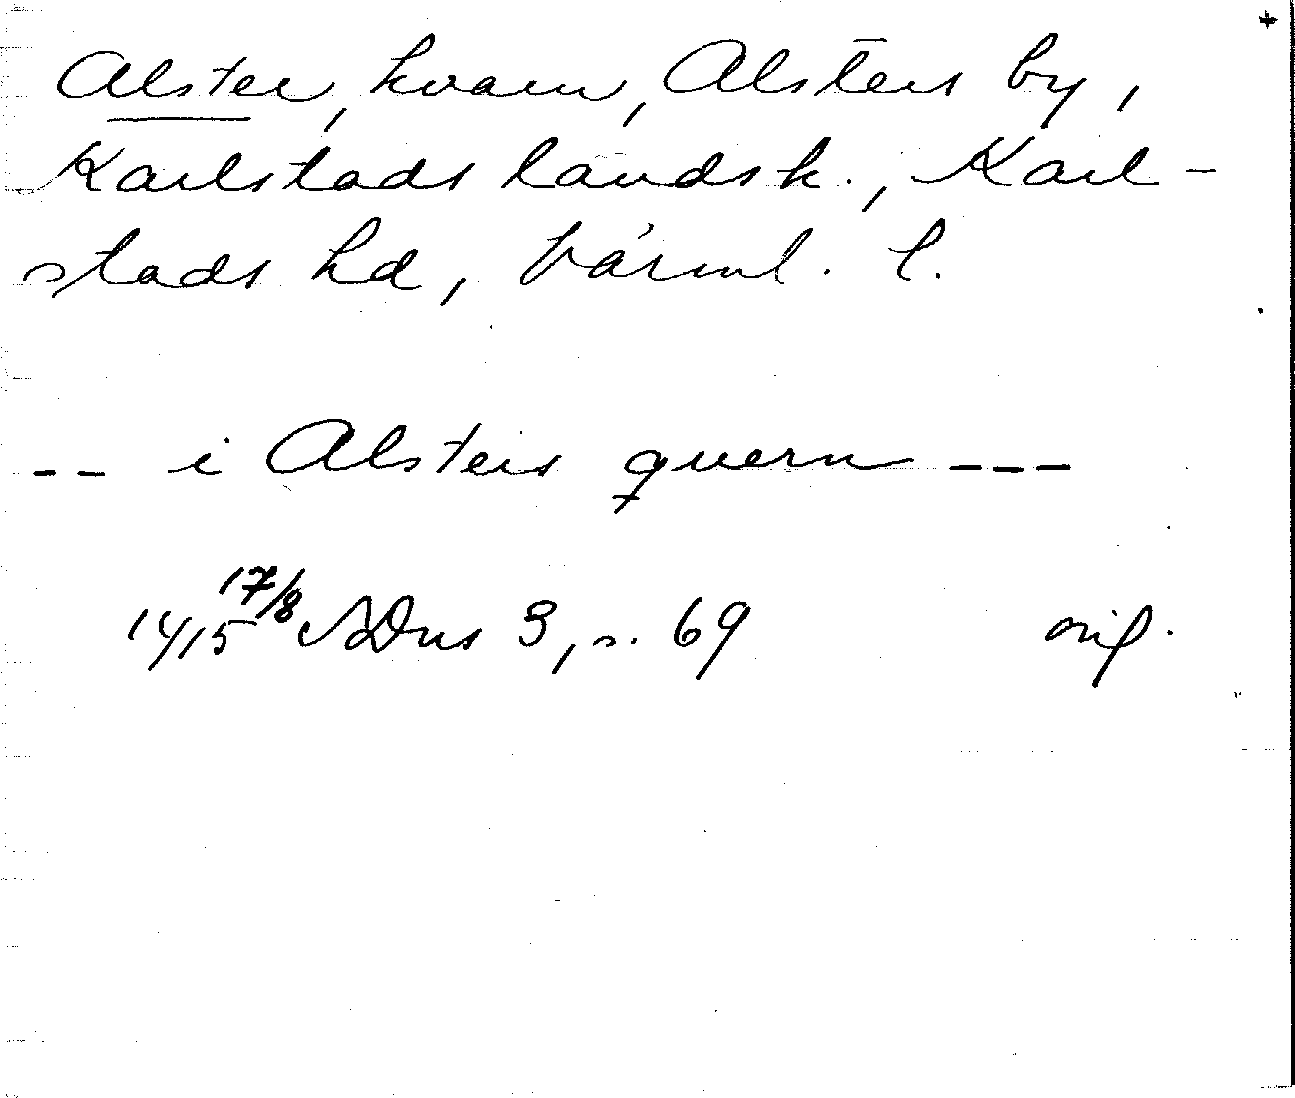 Alster, kvarn, Alsters by,
Karlstads landsk., Karl-
stads hd, Värml. l.
-- i Alsters quern ---
1415 17/8 SDns 3, s. 69 orig.